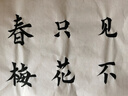 春只见
梅花不